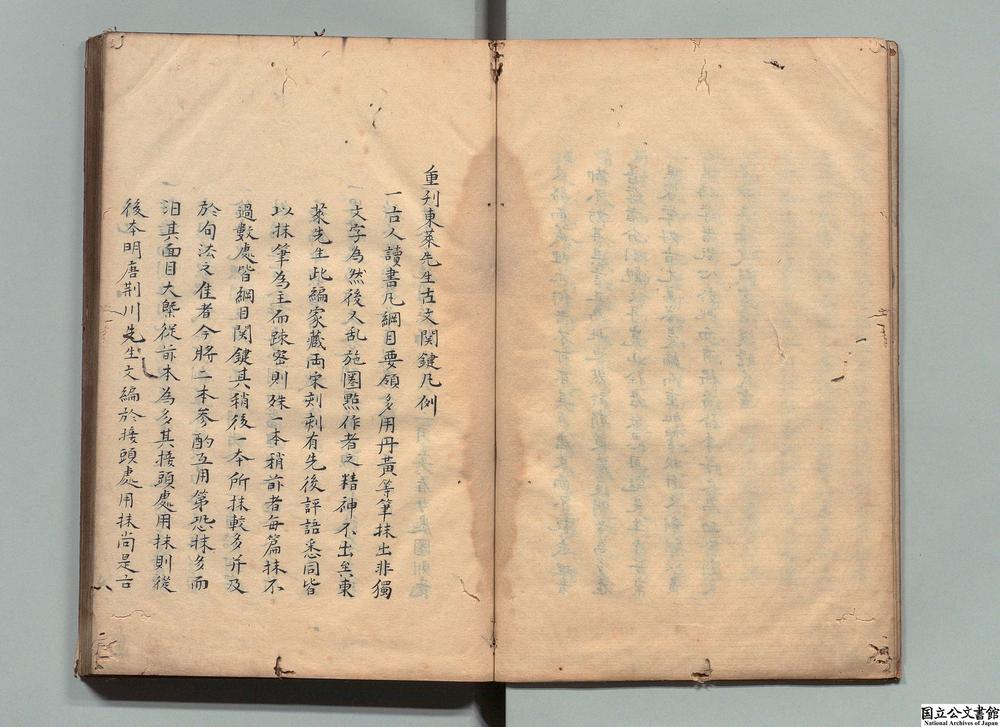 重刋東萊先生古文関鍵凡例
一古人讀書凡綱目要領多用丹黄等筆抹出非獨
文字為然後人乱施圏點作者之精神不出至東
萊先生此編家藏両宋刻刻有先後評語悉同皆
以抹筆為主而疎密則殊一本稍前者每篇抹不
過數處皆綱目関鍵其稍後一本所抹較多并及
於句法之佳者今將二本叅酌互用第恐抹多而
汨其面目大槩従前本為多其接頭處用抹則従
後本明唐荆川先生文編於接頭處用抹尚是古
国立公文書館
National Archives of Japan